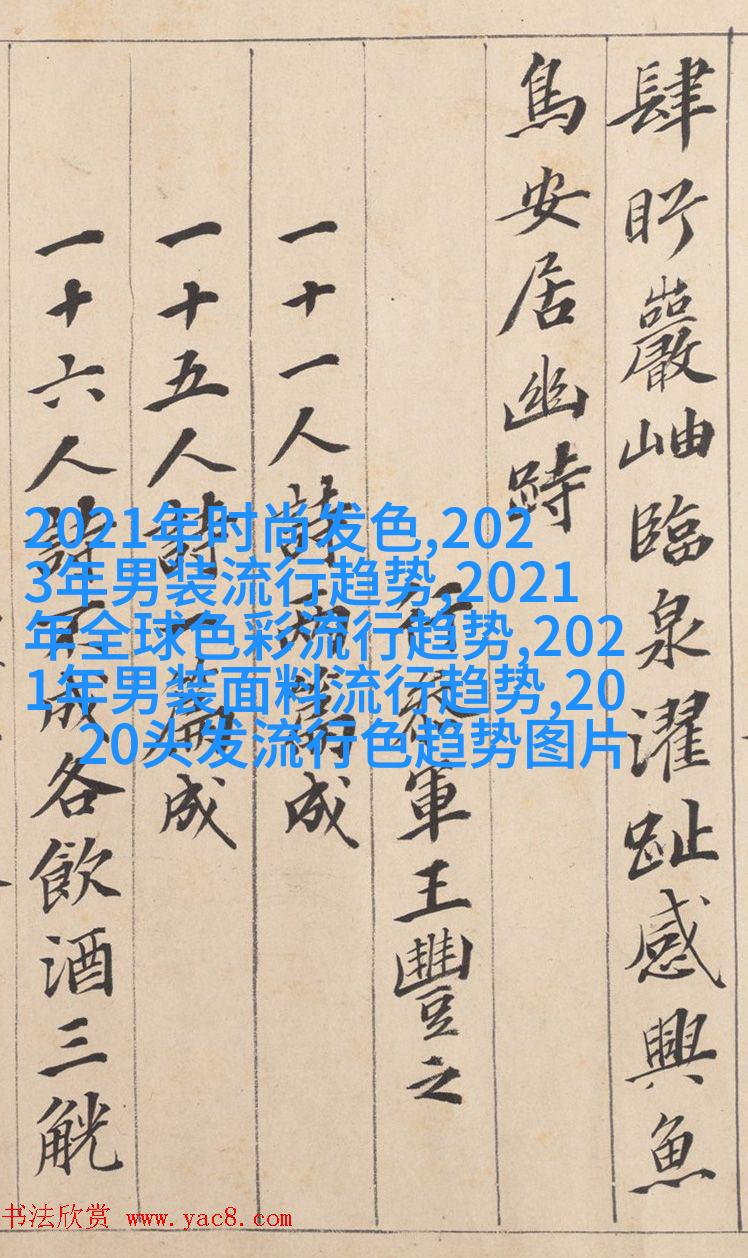 肆盱巖岫臨泉濯趾感興魚
鳥安居幽跱
行參軍王豐之
一十一人詩兩篇成
一十五人詩一篇成
一十六人詩不成各飲酒三觥
2021年时尚发色,202
3年男装流行趋势,2021
年全球色彩流行趋势,202
1年男装面料流行趋势,20
20头发流行色趋势图片
书法欣赏 www.yac8.com